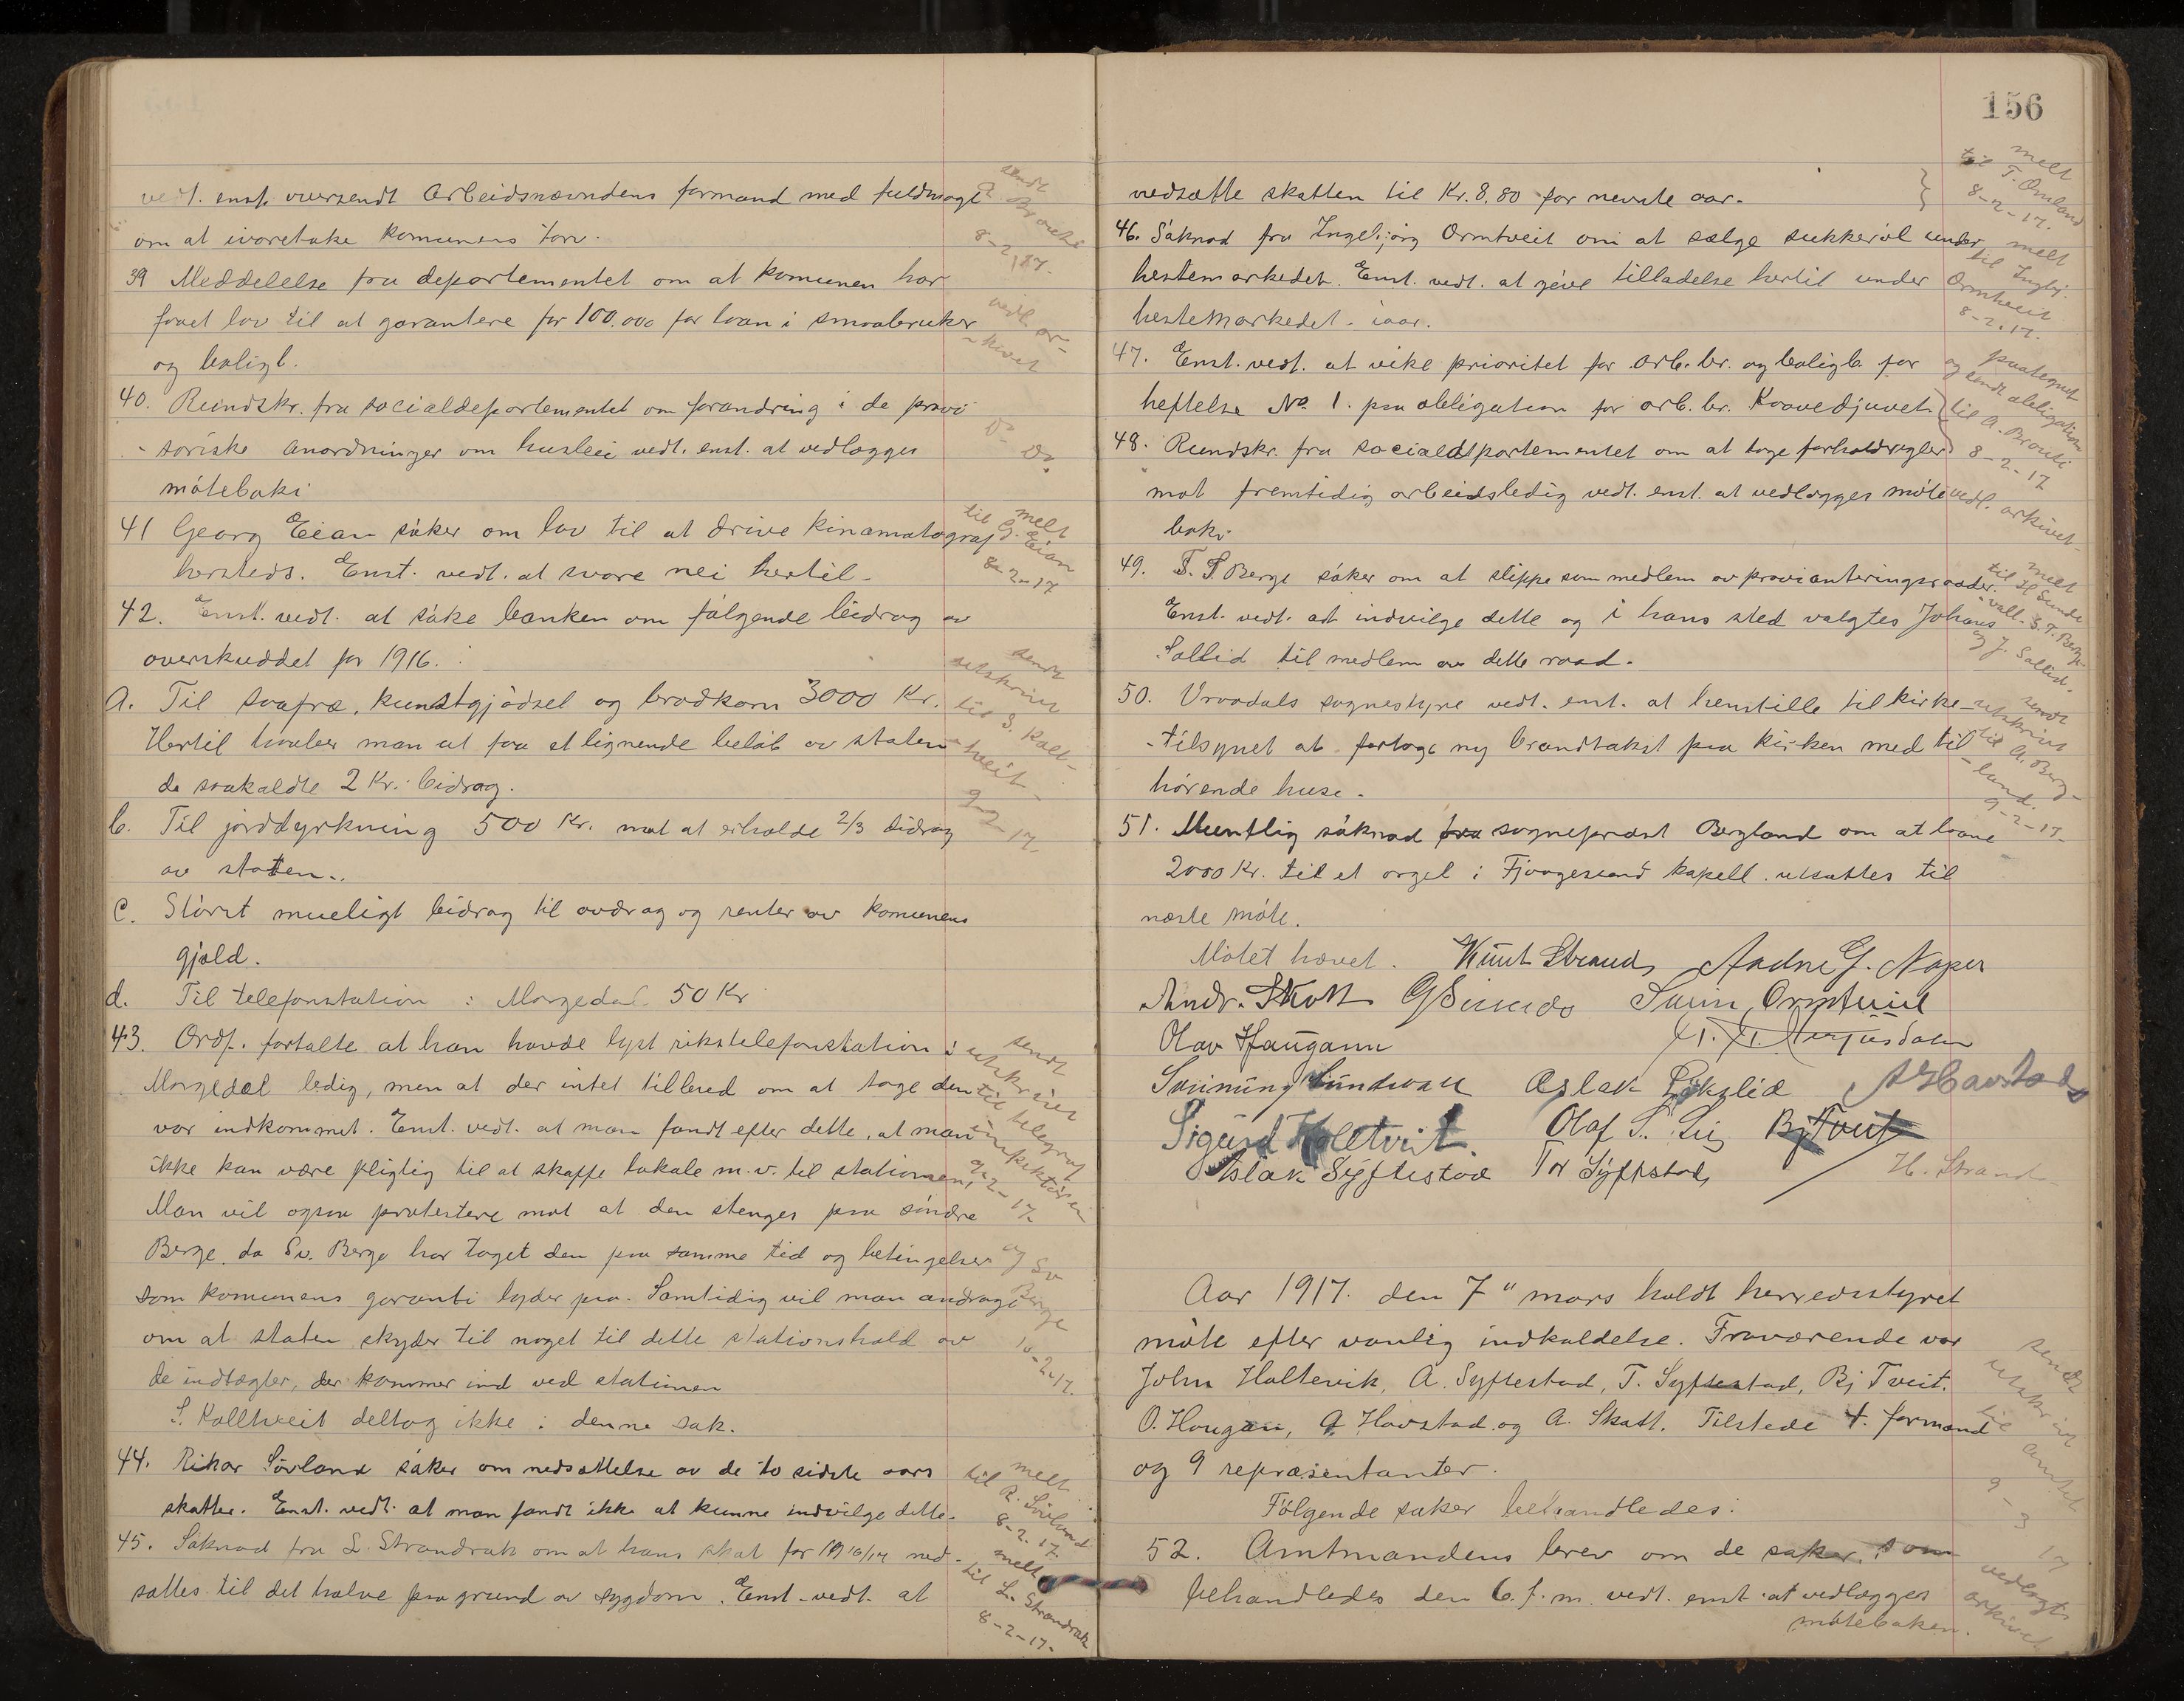 vedt. enst. oversendt Arbeidsnævndens formand med fuldmagt
om at ivaretake komunens tarv.
39 Meddelelse fra departementet om at komunen har
faaet lov til at garantere for 100.000 for laan i smaabruker
og boligb.
40. Rundskr. fra socialdepartementet om forandring i de provi
-soriske anordninger om husleie vedt. enst. at vedlægges
mötebok.
41 Georg Eian söker om lov til at drive kinamatograf
hersteds. Enst. vedt. at svare nei hertil.
42. Enst. vedt. at söke banken om fölgende bidrag av
overskuddet for 1916.
A. Til saafrø, kunstgjödsel og brødkorn 3000 Kr.
Hertil haaber man at faa et lignende belöb av staten
de saakaldte 2 Kr. bidrag.
b. Til jorddyrkning 500 Kr. mot at erholde 2/3 bidrag
av staten.
C. Störst mueligt bidrag til avdrag og renter av komunens
gjæld.
d. Til telefonstation i Morgedal 50 Kr
43. Ordf. fortalte at han havde lyst rikstelefonstation i
Morgedal ledig, men at der intet tilbud om at tage den
var indkommet. Enst. vedt. at man fandt efter dette, at man
ikke kan være pligtig til at skaffe lokale m.v. til stationen,
Man vil ogsaa protestere mot at den stenges paa söndre
Berge, da Sv. Berge har taget den paa samme tid og betingelser
som komunens garanti lyder paa. Samtidig vil man andrage
om at staten skyder til noget til dette stationshold av
de indtægter, der kommer ind ved stationen
S. Kolltveit deltog ikke i denne sak.
44. Rikar Sövland söker om nedsættelse av de to sidste aars
skatter. Enst. vedt. at man fandt ikke at kunne indvilge dette.
45. Söknad fra L. Strandrak om at hans skat for 1916/17 ned-
sættes til det halve paa grund av sygdom. Enst. vedt. at
sendt
8-2-17.
vedl. ar-
-kivet
Do Do
melt
til G. Eian
8-2-17
sendt
utskrivt
til S. Koll-
-tveit
9-2-17.
sendt
utskrivt
til telegraf
inspektören
9-2-17.
og Sv
Berge
10-2-17.
melt
til R. Sövland
8-2-17.
melt
til L. Strandrak
8-2-17.
156
nedsætte skatten til Kr. 8,80 for nevnte aar.
46. Söknad fra Ingebjörg Ormtveit om at sælge sukkeröl under
hestemarkedet. Enst. vedt. at give tilladelse hertil under
hestemarkedet iaar.
47. Enst. vedt. at vike prioritet for arb. br. og boligb. for
heftelse No 1. paa obligation for arb. br. Kraavedjuvet.
48. Rundskr. fra socialdepartementet om at tage forholdregler
mot fremtidig arbeidsledig vedt. enst. at vedlægges möte
bok.
49. T. S. Berge söker om at slippe som medlem av provianteringsraadet.
Enst. vedt. at indvilge dette og i hans sted valgtes Johans
Sollid til medlem av dette raad.
50. Vraadals sognestyre vedt. enst. at henstille til kirke-
-tilsynet at foretage ny brandtakst paa kirken med til
hörende huse.
51. Muntlig söknad fra sogneprest Bergland om at laane
2000 Kr. til et orgel i Fjaagesund kapell utsættes til
næste möte.
Mötet hævet. Knut Strand Andne G. Naper
Andr. Skott G Sundo Svein Ormtveit
Olav Haugann
Sveinung Sundvall Aslak Lökslid A Havstad
Sigurd Kolltveit. Olaf S. Lie Bj Tveit
Aslak Syftestad Tor Syftestad H. Strand
Aar 1917. den 7" mars holdt herredsstyret
möte efter vanlig indkaldelse. Fraværende var
John Haltevik, A. Syftestad, T. Syftestad, Bj Tveit.
O. Haugan, A Havstad og A. Skott. Tilstede f. formand
og 9 repræsentanter.
Fölgende saker behandledes:
52. Amtmandens brev om de saker, som
behandledes den 6. f. m. vedt. enst. at vedlægges
möteboken.
melt
til T. Omland
8-2-17.
melt
til Ingbj.
Ormtveit
8-2-17.
paategnet
og sendt obligation
til A. Brauti
8-2-17
vedl. arkivet.
melt
til H Sunde
S. T. Berge
og J. Sollid.
sendt
utskrivt
til A. Berg-
-land.
9-2-17.
sendt
utskrivt
til amtet
9-3
17
vedlagt
arkivet